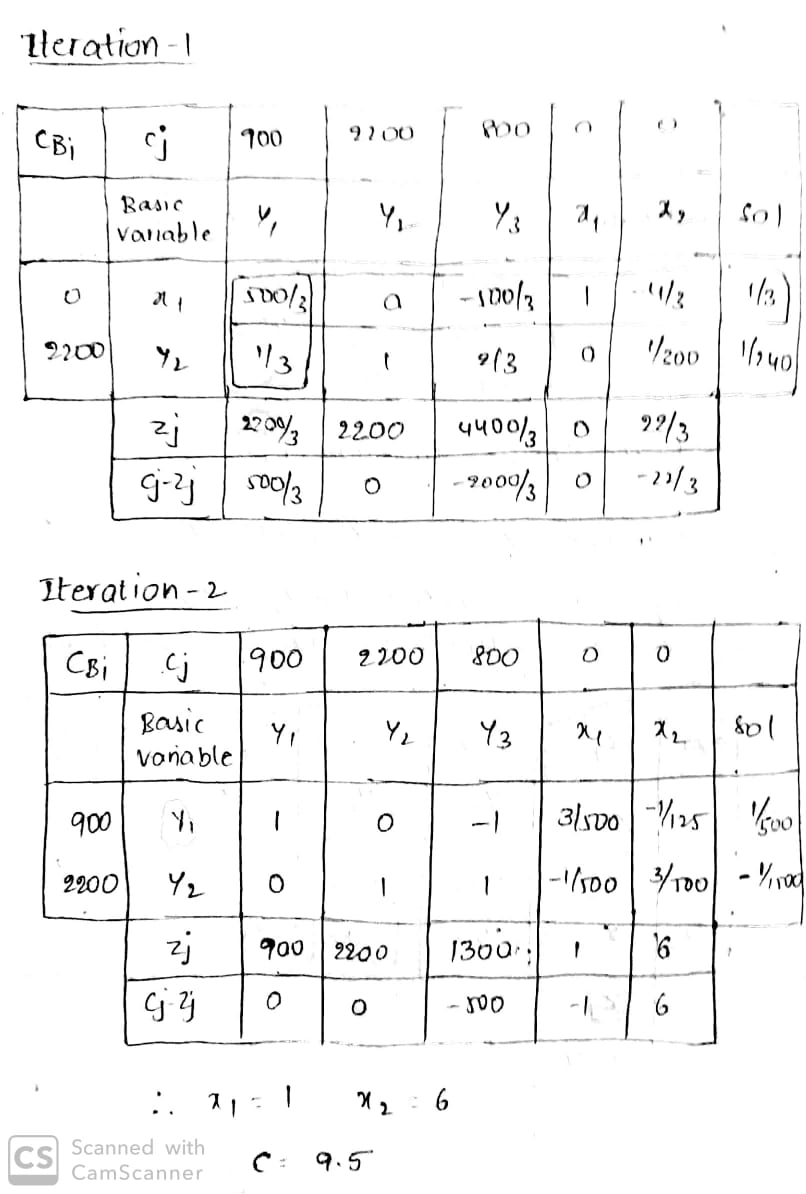 Iteration - 1
CBi Cj 900 2200 800 0 0
Basic variable Y1 Y2 Y3 x1 x2 sol
0 x1 500/3 0 -500/3 1 -4/3 1/3
2200 Y2 1/3 1 2/3 0 1/200 1/240
Zj 2200/3 2200 4400/3 0 22/3
Cj-Zj 500/3 0 -2000/3 0 -22/3
Iteration - 2
CBi Cj 900 2200 800 0 0
Basic variable Y1 Y2 Y3 x1 x2 sol
900 Y1 1 0 -1 3/500 -1/125 1/500
2200 Y2 0 1 1 -1/500 3/500
Zj 900 2200 1300 1 6
Cj-Zj 0 0 -500 -1 6
∴ x1 = 1 x2 = 6
C = 9.5
CS Scanned with
CamScanner